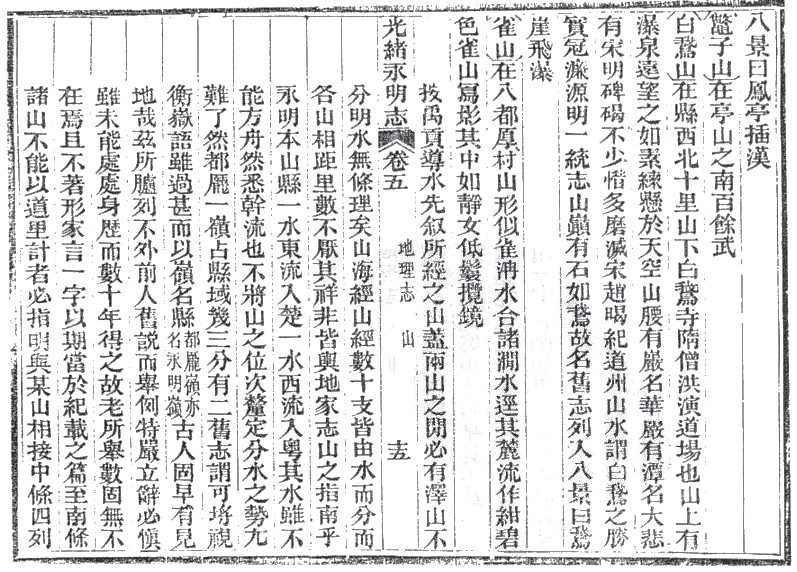 八景曰鳳亭插漢
鼈子山在亭山之南百餘武
白鵞山在縣西北十里山下白鵞寺隋僧洪演道場也山上有
瀑泉遠望之如素練懸於天空山腰有巖名華嚴有潭名大悲
有宋明碑碣不少惜多磨滅宋趙暘紀道州山水謂白鵞之勝
實冠濂源明一統志山巔有石如鵞故名舊志列入八景曰鵞
崖飛瀑
雀山在八都厚村山形似雀淌水合諸澗水逕其麓流作紺碧
色雀山寫影其中如靜女低鬟攬鏡
光緒永明志 卷五 地理志 山
按禹貢導水先敘所經之山蓋兩山之閒必有澤山不
分明水無條理矣山海經山經數十支皆由水而分而
各山相距里數不厭其祥非皆輿地家志山之指南乎
永明本山縣一水東流入楚一水西流入粵其水雖不
能方舟然悉幹流也不將山之位次釐定分水之勢尢
難了然都龐一嶺占縣域幾三分有二舊志謂可埒視
衡嶽語雖過甚而以嶺名縣都龐嶺亦名永明嶺古人固早有見
地哉茲所臚列不外前人舊說而舉例特嚴立辭必愼
雖未能處處身歷而數十年得之故老所舉數固無不
在焉且不著形家言一字以期當於紀載之篇至南條
諸山不能以道里計者必指明與某山相接中條四列